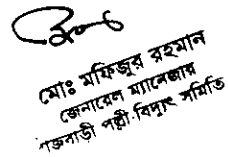 মোঃ মফিজুর রহমান
জেনারেল ম্যানেজার
পল্লী বিদ্যুৎ সমিতি